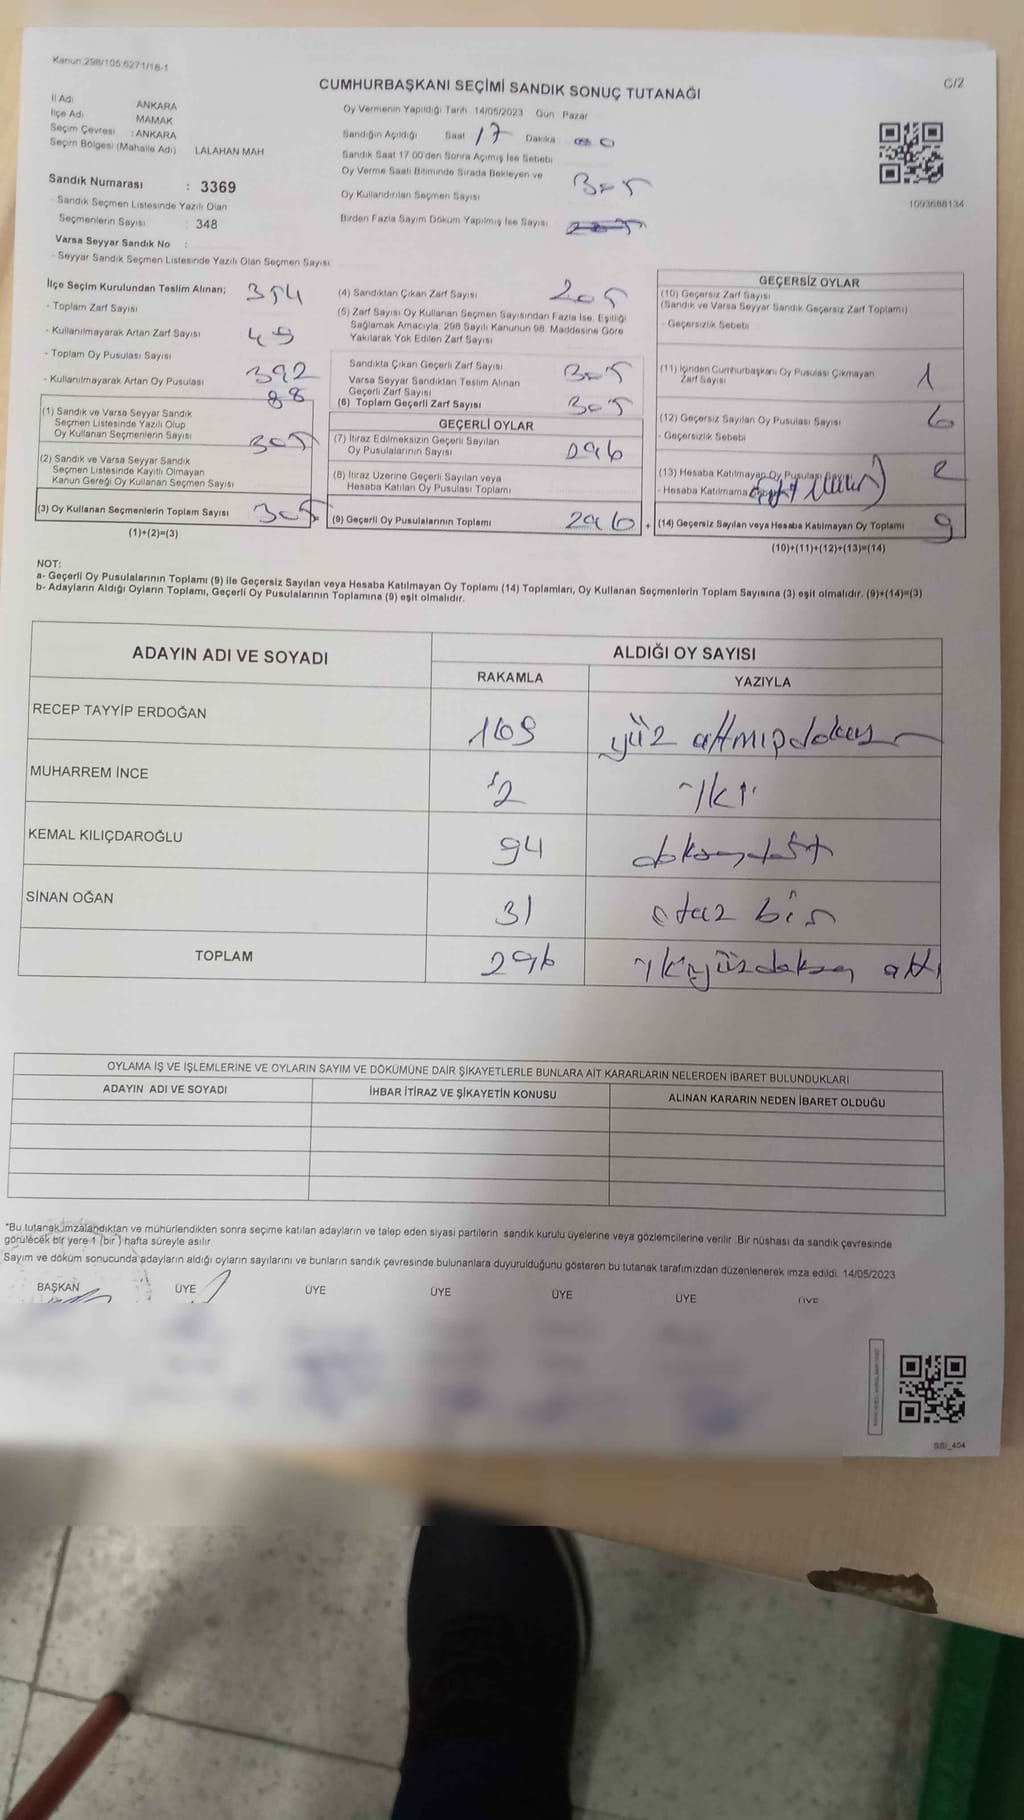 Kanun:298/105:6271/16-1
C/2
CUMHURBAŞKANI SEÇİMİ SANDIK SONUÇ TUTANAĞI
İl Adı ANKARA
İlçe Adı MAMAK
Seçim Çevresi : ANKARA
Seçim Bölgesi (Mahalle Adı) LALAHAN MAH
Sandık Numarası : 3369
- Sandık Seçmen Listesinde Yazılı Olan
Seçmenlerin Sayısı : 348
Varsa Seyyar Sandık No :
- Seyyar Sandık Seçmen Listesinde Yazılı Olan Seçmen Sayısı
Oy Vermenin Yapıldığı Tarih 14/05/2023 Gün Pazar
Sandığın Açıldığı Saat 17 Dakika 00
Sandık Saat 17 00'den Sonra Açımış İse Sebebi
Oy Verme Saati Bitiminde Sırada Bekleyen ve
Oy Kullandırılan Seçmen Sayısı 305
Birden Fazla Sayım Döküm Yapılmış İse Sayısı
1093688134
İlçe Seçim Kurulundan Teslim Alınan;
- Toplam Zarf Sayısı 354
- Kullanılmayarak Artan Zarf Sayısı 49
- Toplam Oy Pusulası Sayısı 392
- Kullanılmayarak Artan Oy Pusulası 88
(1) Sandık ve Varsa Seyyar Sandık
Seçmen Listesinde Yazılı Olup
Oy Kullanan Seçmenlerin Sayısı 305
(2) Sandık ve Varsa Seyyar Sandık
Seçmen Listesinde Kayıtlı Olmayan
Kanun Gereği Oy Kullanan Seçmen Sayısı
(3) Oy Kullanan Seçmenlerin Toplam Sayısı 305
(1)+(2)=(3)
(4) Sandıktan Çıkan Zarf Sayısı 205
(5) Zarf Sayısı Oy Kullanan Seçmen Sayısından Fazla İse, Eşitliği
Sağlamak Amacıyla, 298 Sayılı Kanunun 98. Maddesine Göre
Yakılarak Yok Edilen Zarf Sayısı
Sandıkta Çıkan Geçerli Zarf Sayısı 305
Varsa Seyyar Sandıktan Teslim Alınan
Geçerli Zarf Sayısı
(6) Toplam Geçerli Zarf Sayısı 305
GEÇERLİ OYLAR
(7) İtiraz Edilmeksizin Geçerli Sayılan
Oy Pusulalarının Sayısı 296
(8) İtiraz Üzerine Geçerli Sayılan veya
Hesaba Katılan Oy Pusulası Toplamı
(9) Geçerli Oy Pusulalarının Toplamı 296 +
GEÇERSİZ OYLAR
(10) Geçersiz Zarf Sayısı
(Sandık ve Varsa Seyyar Sandık Geçersiz Zarf Toplamı)
- Geçersizlik Sebebi
(11) İçinden Cumhurbaşkanı Oy Pusulası Çıkmayan
Zarf Sayısı 1
(12) Geçersiz Sayılan Oy Pusulası Sayısı 6
- Geçersizlik Sebebi
(13) Hesaba Katılmayan Oy Pusulası Sayısı 2
- Hesaba Katılmama
(14) Geçersiz Sayılan veya Hesaba Katılmayan Oy Toplamı 9
(10)+(11)+(12)+(13)=(14)
NOT:
a- Geçerli Oy Pusulalarının Toplamı (9) ile Geçersiz Sayılan veya Hesaba Katılmayan Oy Toplamı (14) Toplamları, Oy Kullanan Seçmenlerin Toplam Sayısına (3) eşit olmalıdır. (9)+(14)=(3)
b- Adayların Aldığı Oyların Toplamı, Geçerli Oy Pusulalarının Toplamına (9) eşit olmalıdır.
ADAYIN ADI VE SOYADI ALDIĞI OY SAYISI
RAKAMLA YAZIYLA
RECEP TAYYİP ERDOĞAN 169 yüz altmışdokuz
MUHARREM İNCE 2 iki
KEMAL KILIÇDAROĞLU 94 doksandört
SİNAN OĞAN 31 otuz bir
TOPLAM 296 ikiyüzdoksan altı
OYLAMA İŞ VE İŞLEMLERİNE VE OYLARIN SAYIM VE DÖKÜMÜNE DAİR ŞİKAYETLERLE BUNLARA AİT KARARLARIN NELERDEN İBARET BULUNDUKLARI
ADAYIN ADI VE SOYADI İHBAR İTİRAZ VE ŞİKAYETİN KONUSU ALINAN KARARIN NEDEN İBARET OLDUĞU
*Bu tutanak imzalandıktan ve mühürlendikten sonra seçime katılan adayların ve talep eden siyasi partilerin sandık kurulu üyelerine veya gözlemcilerine verilir. Bir nüshası da sandık çevresinde
görülecek bir yere 1 (bir) hafta süreyle asılır.
Sayım ve döküm sonucunda adayların aldığı oyların sayılarını ve bunların sandık çevresinde bulunanlara duyurulduğunu gösteren bu tutanak tarafımızdan düzenlenerek imza edildi. 14/05/2023
BAŞKAN ÜYE ÜYE ÜYE ÜYE ÜYE ÜYE
SSI_404